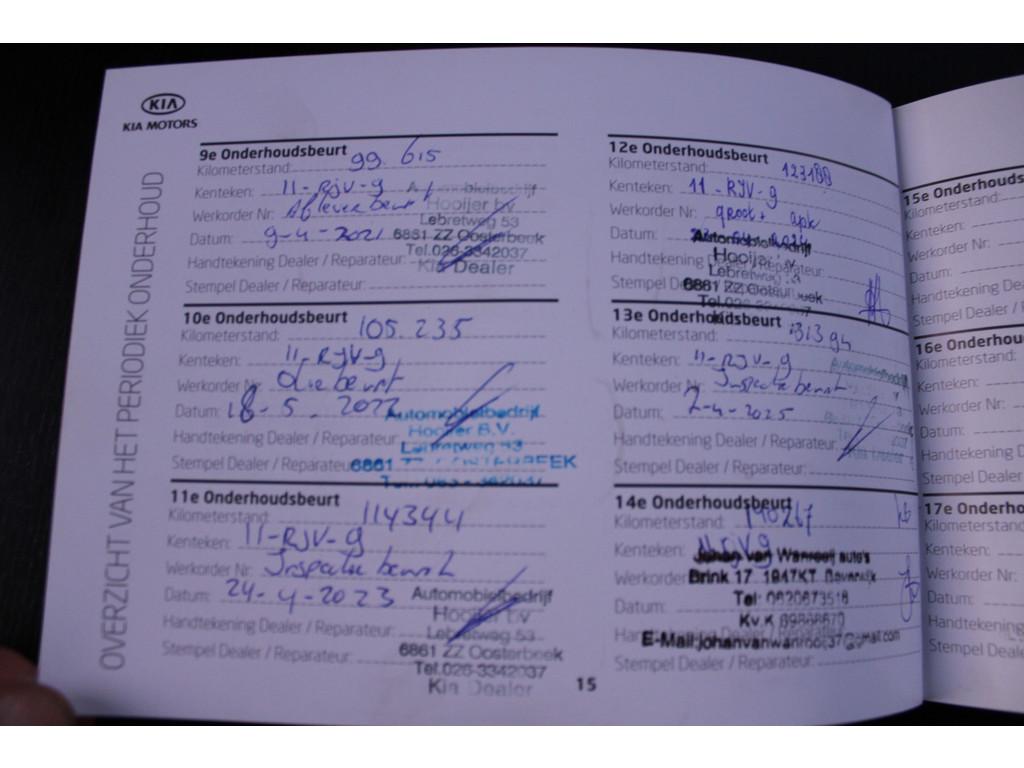 KIA
KIA MOTORS
OVERZICHT VAN HET PERIODIEK ONDERHOUD
9e Onderhoudsbeurt
Kilometerstand: 99.615
Kenteken: 11-RJV-9
Werkorder Nr: Afleverbeurt
Datum: 9-4-2021
Handtekening Dealer / Reparateur:
Stempel Dealer / Reparateur:
Hooijer bv
Lebretweg 53
6861 ZZ Oosterbeek
Tel.026-3342037
Kia Dealer
10e Onderhoudsbeurt
Kilometerstand: 105.235
Kenteken: 11-RJV-9
Werkorder Nr: Oliebeurt
Datum: 18-5-2022
Handtekening Dealer / Reparateur:
Stempel Dealer / Reparateur:
Automobielbedrijf
Hooijer B.V.
Lebretweg 53
6861 ZZ OOSTERBEEK
11e Onderhoudsbeurt
Kilometerstand: 114344
Kenteken: 11-RJV-9
Werkorder Nr: Inspectie beurt
Datum: 24-4-2023
Handtekening Dealer / Reparateur:
Stempel Dealer / Reparateur:
Automobielbedrijf
Hooijer bv
Lebretweg 53
6861 ZZ Oosterbeek
Tel.026-3342037
Kia Dealer
15
12e Onderhoudsbeurt
Kilometerstand: 123188
Kenteken: 11-RJV-9
Werkorder Nr: groot + apk
Datum:
Handtekening Dealer / Reparateur:
Stempel
Automobielbedrijf
Hooijer
Lebretweg
6861 ZZ Oosterbeek
13e Onderhoudsbeurt
Kilometerstand: 131394
Kenteken: 11-RJV-9
Werkorder Nr: Inspectie beurt
Datum: 2-4-2025
Handtekening Dealer / Reparateur:
Stempel Dealer / Reparateur:
14e Onderhoudsbeurt
Kilometerstand: 140267
Kenteken: 11RJV9
Werkorder
Datum:
Stempel Dealer / Reparateur:
Johan van Wanrooij auto's
Brink 17 1947KT Beverwijk
Tel: 0620873518
E-Mail:johanvanwanrooij37@gmail.com
15e Onderhouds
Kilometerstand:
Kenteken:
Werkorder Nr:
Datum:
Handtekening Dealer
Stempel Dealer /
16e Onderho
Kilometerstand:
Kenteken:
Werkorder Nr:
Datum:
Handtekening D
Stempel Dealer
17e Onderho
Kilometerstand
Kenteken:
Werkorder Nr:
Datum:
Handtekening
Stempel Deale